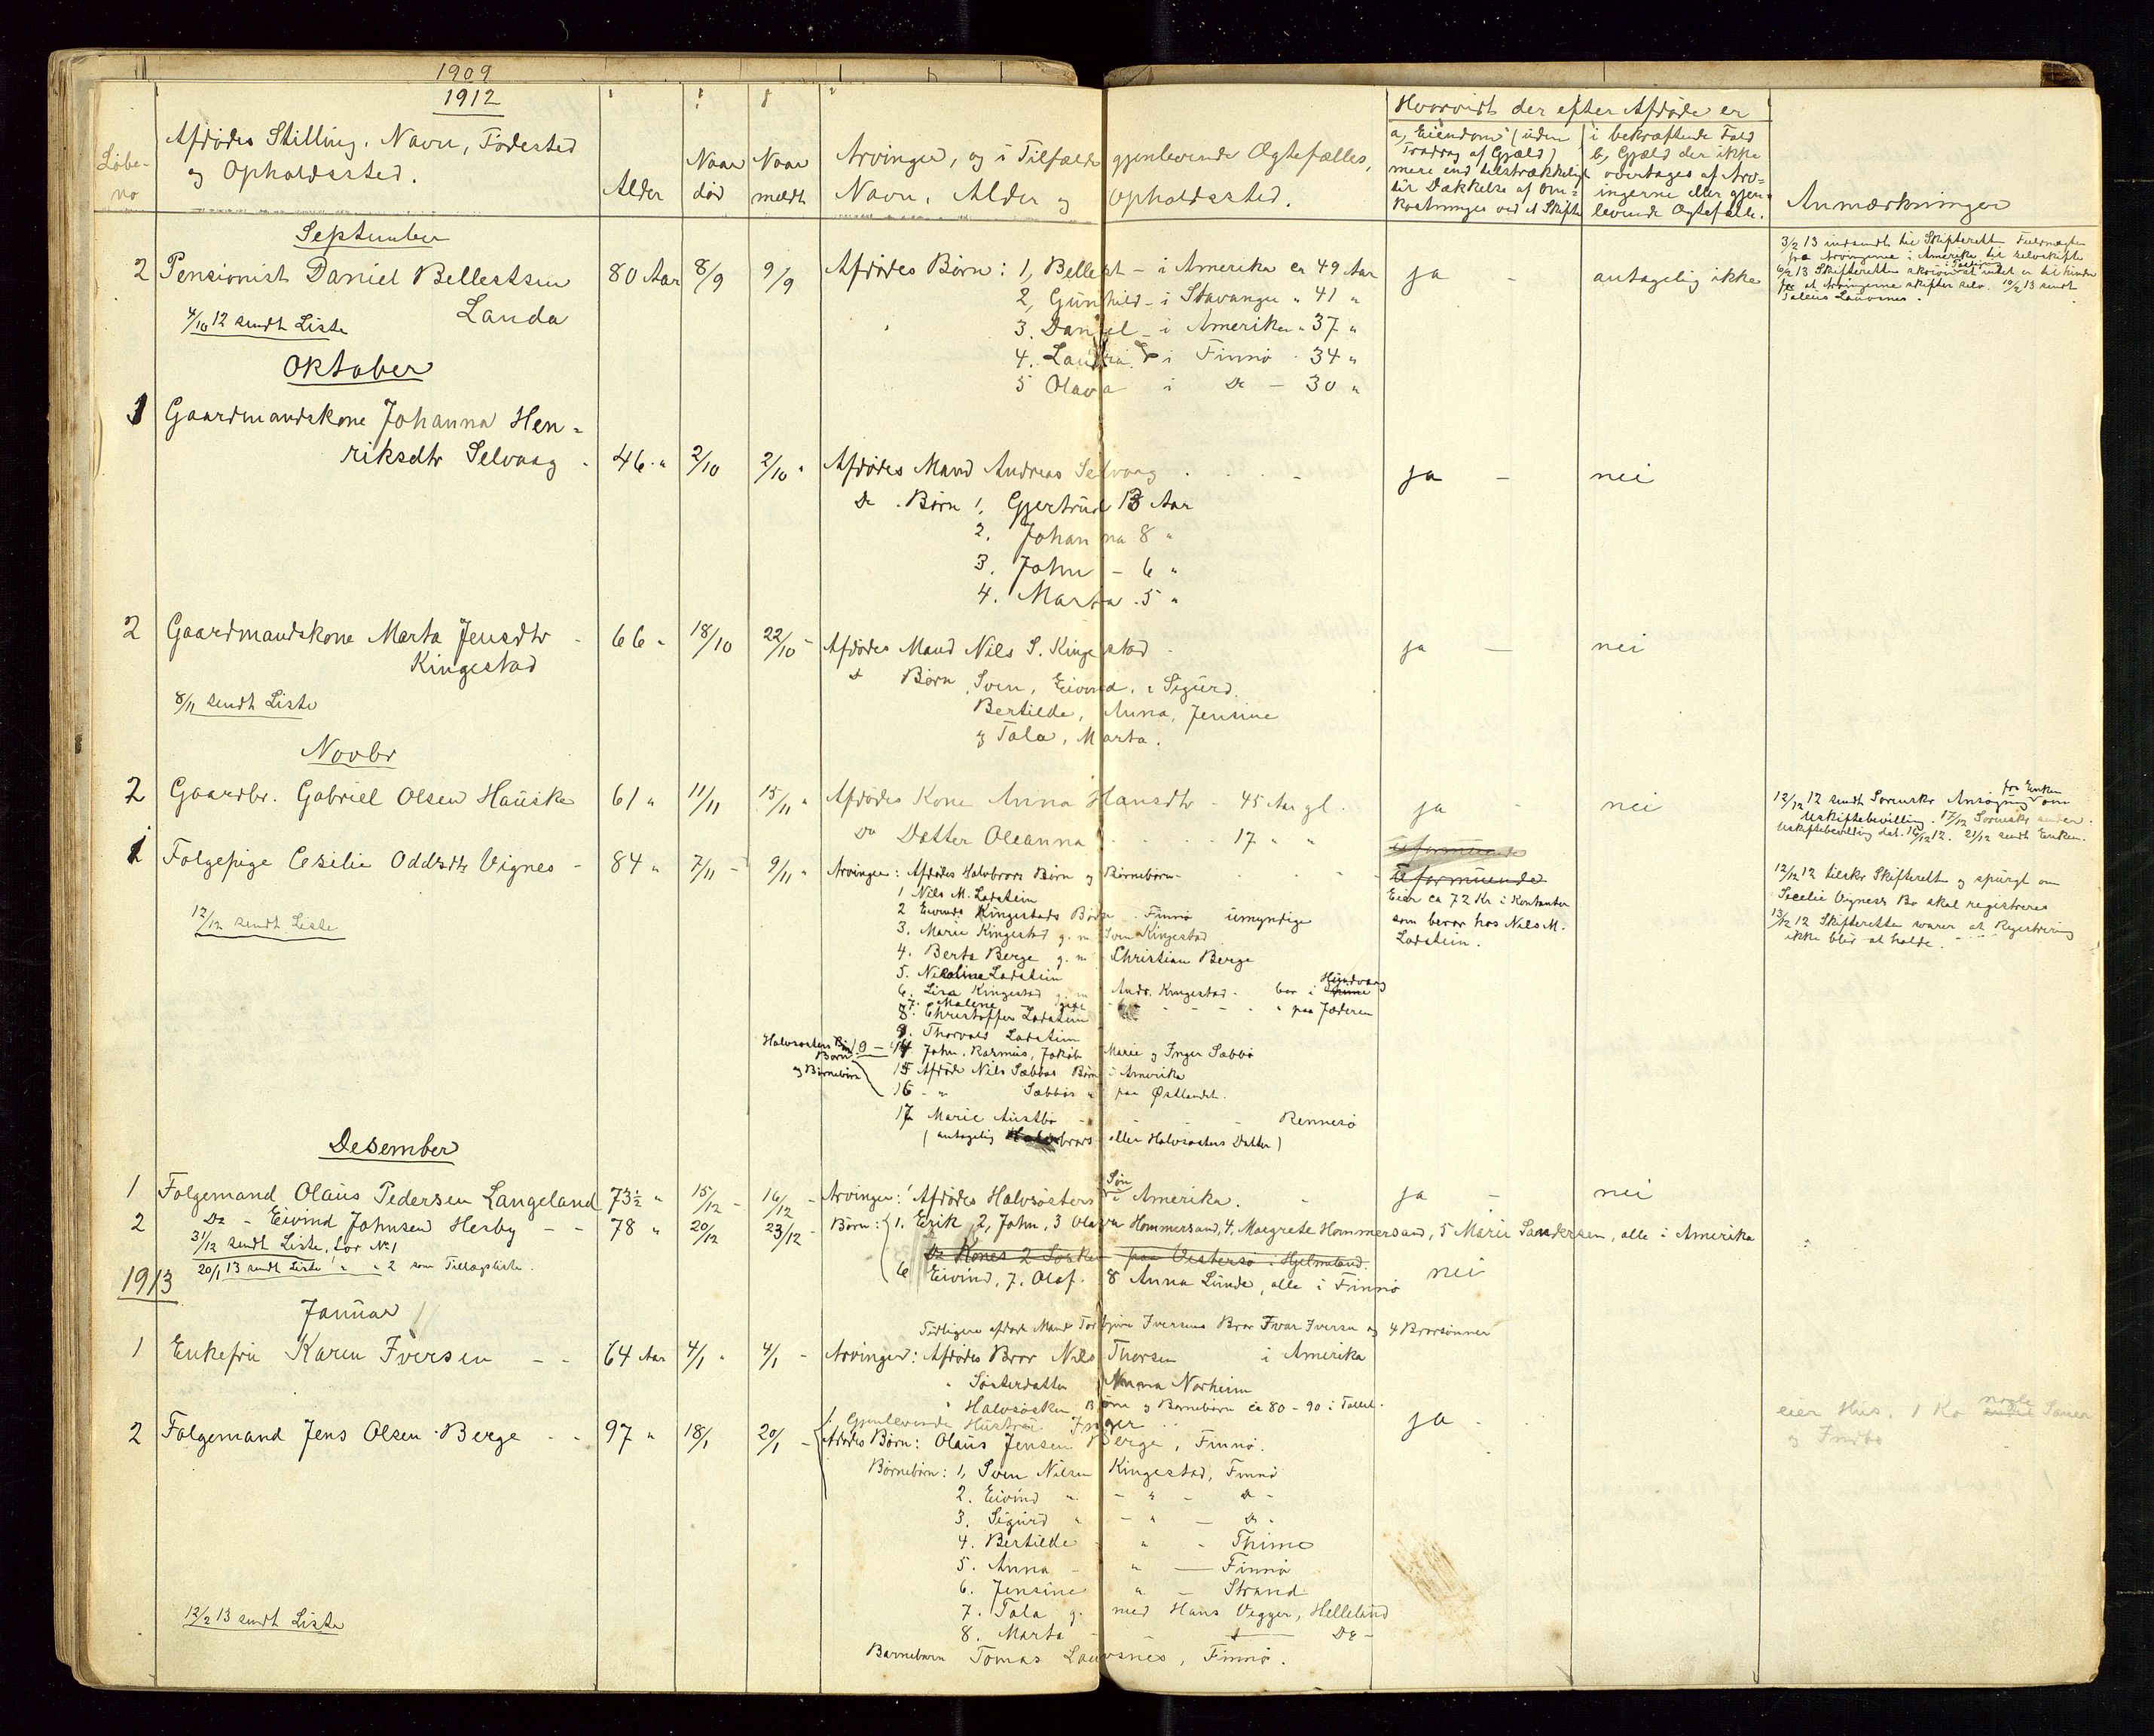 1909
1912
Løbe-
no
Afdødes Stilling, Navn, Fødested
og Opholdssted.
Alder
Naar
død
Naar
meldt
Arvinger, og i Tilfælde gjenlevende Ægtefælles,
Navn, Alder og Opholdssted.
Hvorvidt der efter Afdøde er
a, Eiendom (uden
Fradrag af Gjæld)
mere end tilstrækkeligt
til Dækkelse af Om=
kostninger ved et Skifte
i bekræftende Fald
b, Gjæld der ikke
overtages af Arv=
ingerne eller gjen=
levende Ægtefælle.
Anmærkninger
September
2 Pensionist Daniel Bellestsen 80 Aar 8/9 9/9 Afdødes Børn: 1, Bellest - i Amerika ca 49 Aar ja - antagelig ikke
Landa
2, Gunhild - i Stavanger " 41 "
4/10 12 sendt Liste
3. Daniel - i Amerika " 37 "
4. Laurtia i Finnø - 34 "
5 Olava i Do - 30 "
3/2 13 indsendt til Skifteretten Fuldmagter
fra Arvingerne i Amerika til selvskifte
6/2 13 Skifteretten skriver at intet er til hinder
for at Arvingerne skifter selv. 10/2 13 sendt
Lauvsnes.
Oktober
1 Gaardmandskone Johanna Hen=
riksdtr Selvaag - 46 " 2/10 2/10 " Afdødes Mand Andreas Selvaag ja - nei
Do Børn 1, Gjertrud 13 Aar
2. Johanna 8 "
3. John - 6 "
4. Marta 5 "
2 Gaardmandskone Marta Jensdtr - 66 " 18/10 22/10 - Afdødes Mand Nils S. Kingestad - ja - nei
Kingestad
Do Børn Sven, Eivind, Sigurd.
8/11 sendt Liste
Bertilde, Anna, Jensine
og Tala, Marta.
Novbr
2 Gaardbr. Gabriel Olsen Hauske 61 " 11/11 15/11 " Afdødes Kone Anna Hansdtr - 45 Aar gl. ja - nei
Do Datter Oleanna 17 " "
12/12 12 sendt Sorenskr Ansøgning fra Enken om
Uskiftebevilling. 17/12 Sorenskr sender
Uskiftebevilling dat. 16/12 12. 21/12 sendt Enken.
1 Folgepige Cesilie Oddsdtr Vignes - 84 " 7/11 - 9/11 " Arvinger: Afdødes Halvbrors Børn og Børnebørn -
12/12 sendt Liste
1 Nils M. Ladstein
2 Eivinds Kingestads Børn Finnø umyndige
3. Marie Kingestad g. m Sven Kingestad
4. Berta Berge g. m Christian Berge
5. Nicoline Ladstein
6. Lisa Kingestad g. m Andr. Kingestad - bor i Hundvaag
7. Malene gift - " paa Jæderen
8. Christoffer Ladstein
9. Thorvald Ladstein
Halvsøsters Børn
og Børnebørn
10 - 14 John, Rasmus, Jakob Marie og Inger Sæbbø
15 Afdøde Nils Sæbbøs Børn i Amerika
16 - " Sæbbøs " paa Østlandet.
17 Marie Austbø - - Rennesø
(antagelig Halvbrors eller Halvsøsters Datter)
Uformuende
Eier ca 72 Kr i Kontanter
som beror hos Nils M.
Ladstein.
12/12 12 tilskr Skifterett og spurgt om
Secelie Vigness Bo skal registreres
13/12 12 Skifteretten svarer at Registrering
ikke blir at holde.
Desember
1 Folgemand Olaus Pedersen Langeland 73½ " 15/12 - 16/12 - Arvinger: Afdødes Halvsøsters Søn i Amerika. - ja - nei
2 Do - Eivind Johnsen Hesby - - 78 " 20/12 23/12 - Børn: 1. Erik, 2, John, 3 Olava Hommersand, 4. Margrete Hommersand, 5 Marie Sandersen, alle i Amerika
31/12 sendt Liste, for No 1
Do Kones 2 Søsken paa Vestersø i Hjelmeland.
20/1 13 sendt Liste " " 2 som Tillægsliste.
6 Eivind, 7. Olaf. 8 Anna Lunde, alle i Finnø nei
1913
Januar
Tidligere afdøde Mand Torbjørn Iversens Bror Ivar Iversen og 4 Brorsønner
1 Enkefru Karen Iversen - - 64 Aar 4/1 " 4/1 - Arvinger: Afdødes Bror Nils Thorsen i Amerika
" Søsterdatter Anna Norheim
" Halvsøsken Børn og Børnebørn ca 80 - 90 i Tallet.
Gjenlevende Hustru Inger
2 Folgemand Jens Olsen Berge - - 97 " 18/1 20/1 - Afdødes Børn: Olaus Jensen Berge, Finnø. ja -
eier Hus, 1 Ko nogle Sauer
og Indbo
Børnebørn: 1, Sven Nilsen Kingestad, Finnø
2. Eivind " - " - Do -
3. Sigurd " - " - Do -
4. Bertilde " - Thime
5. Anna - " - Finnø
6. Jensine " - Strand
7. Tala g. med Hans Vegger, Helleland
12/2 13 sendt Liste
8. Marta - Do -
Barnebarn Tomas Lauvsnes, Finnø.